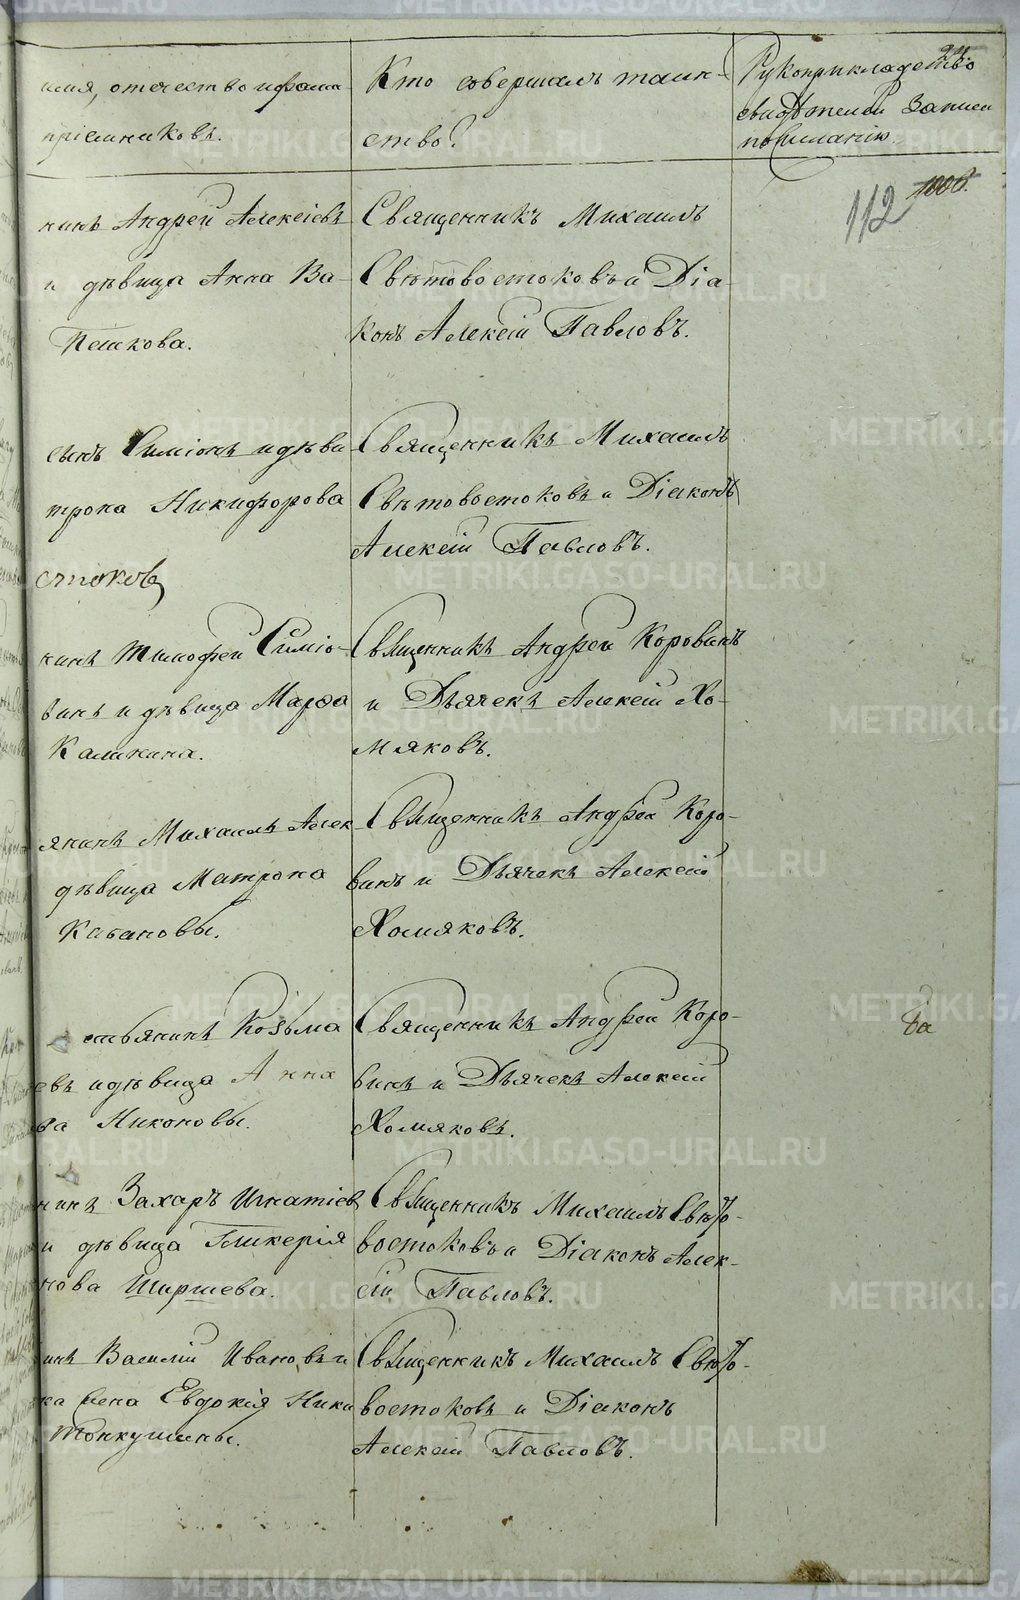 имя, отечество и фами-
пріемниковъ.
Кто совершалъ таин-
ство?
Рукоприкладство
свидѣтелей записи
по желанію.
112
нинъ Андрей Алексіевъ
и дѣвица Анна Ва-
Пешкова.
Священникъ Михаилъ
Свѣтовостоковъ и Діа-
конъ Алексій Павловъ.
сынъ Симіонъ и дѣви
трона Никифорова
стоковы
Священникъ Михаилъ
Свѣтовостоковъ и Діаконъ
Алексій Павловъ.
нинъ Тимофей Симіо-
винъ и дѣвица Марѳа
Калинина.
Священникъ Андрей Коровинъ
и Дьячекъ Алексій Хо-
мяковъ.
янинъ Михаилъ Алек
дѣвица Матрона
Кабановы.
Священникъ Андрей Коро-
винъ и Дьячекъ Алексій
Хомяковъ.
стьянинъ Козьма
евъ и дѣвица Анна
ва Никоновы.
Священникъ Андрей Коро-
винъ и Дьячекъ Алексій
Хомяковъ.
нинъ Захаръ Игнатіев
и дѣвица Гликерія
нова Ширшева.
Священникъ Михаилъ Свѣто-
востоковъ и Діаконъ Алек-
сій Павловъ.
инъ Василій Ивановъ и
ка жена Евдокія Ники
Тонкушины.
Священникъ Михаилъ Свѣто-
востоковъ и Діаконъ
Алексій Павловъ.
METRIKI.GASO-URAL.RU